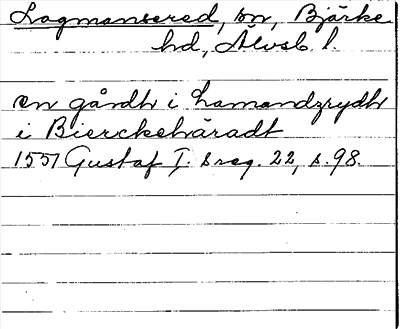 Lagmansered, sn, Bjärke
hd, Älvsb. l.
en gårdh i Lamandzrydh
i Bierckehäradt
1551 Gustaf I:s reg. 22, s. 98.